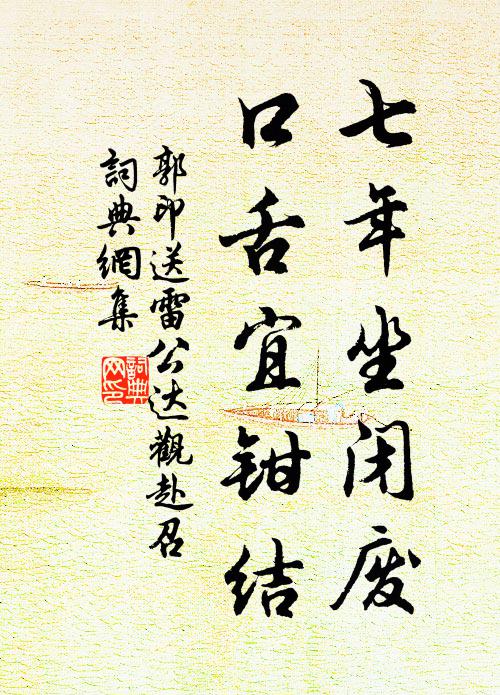 七年坐闭废
口舌宜钳结
郭印送雷公达觀赴召
詞典網集
詞典網印